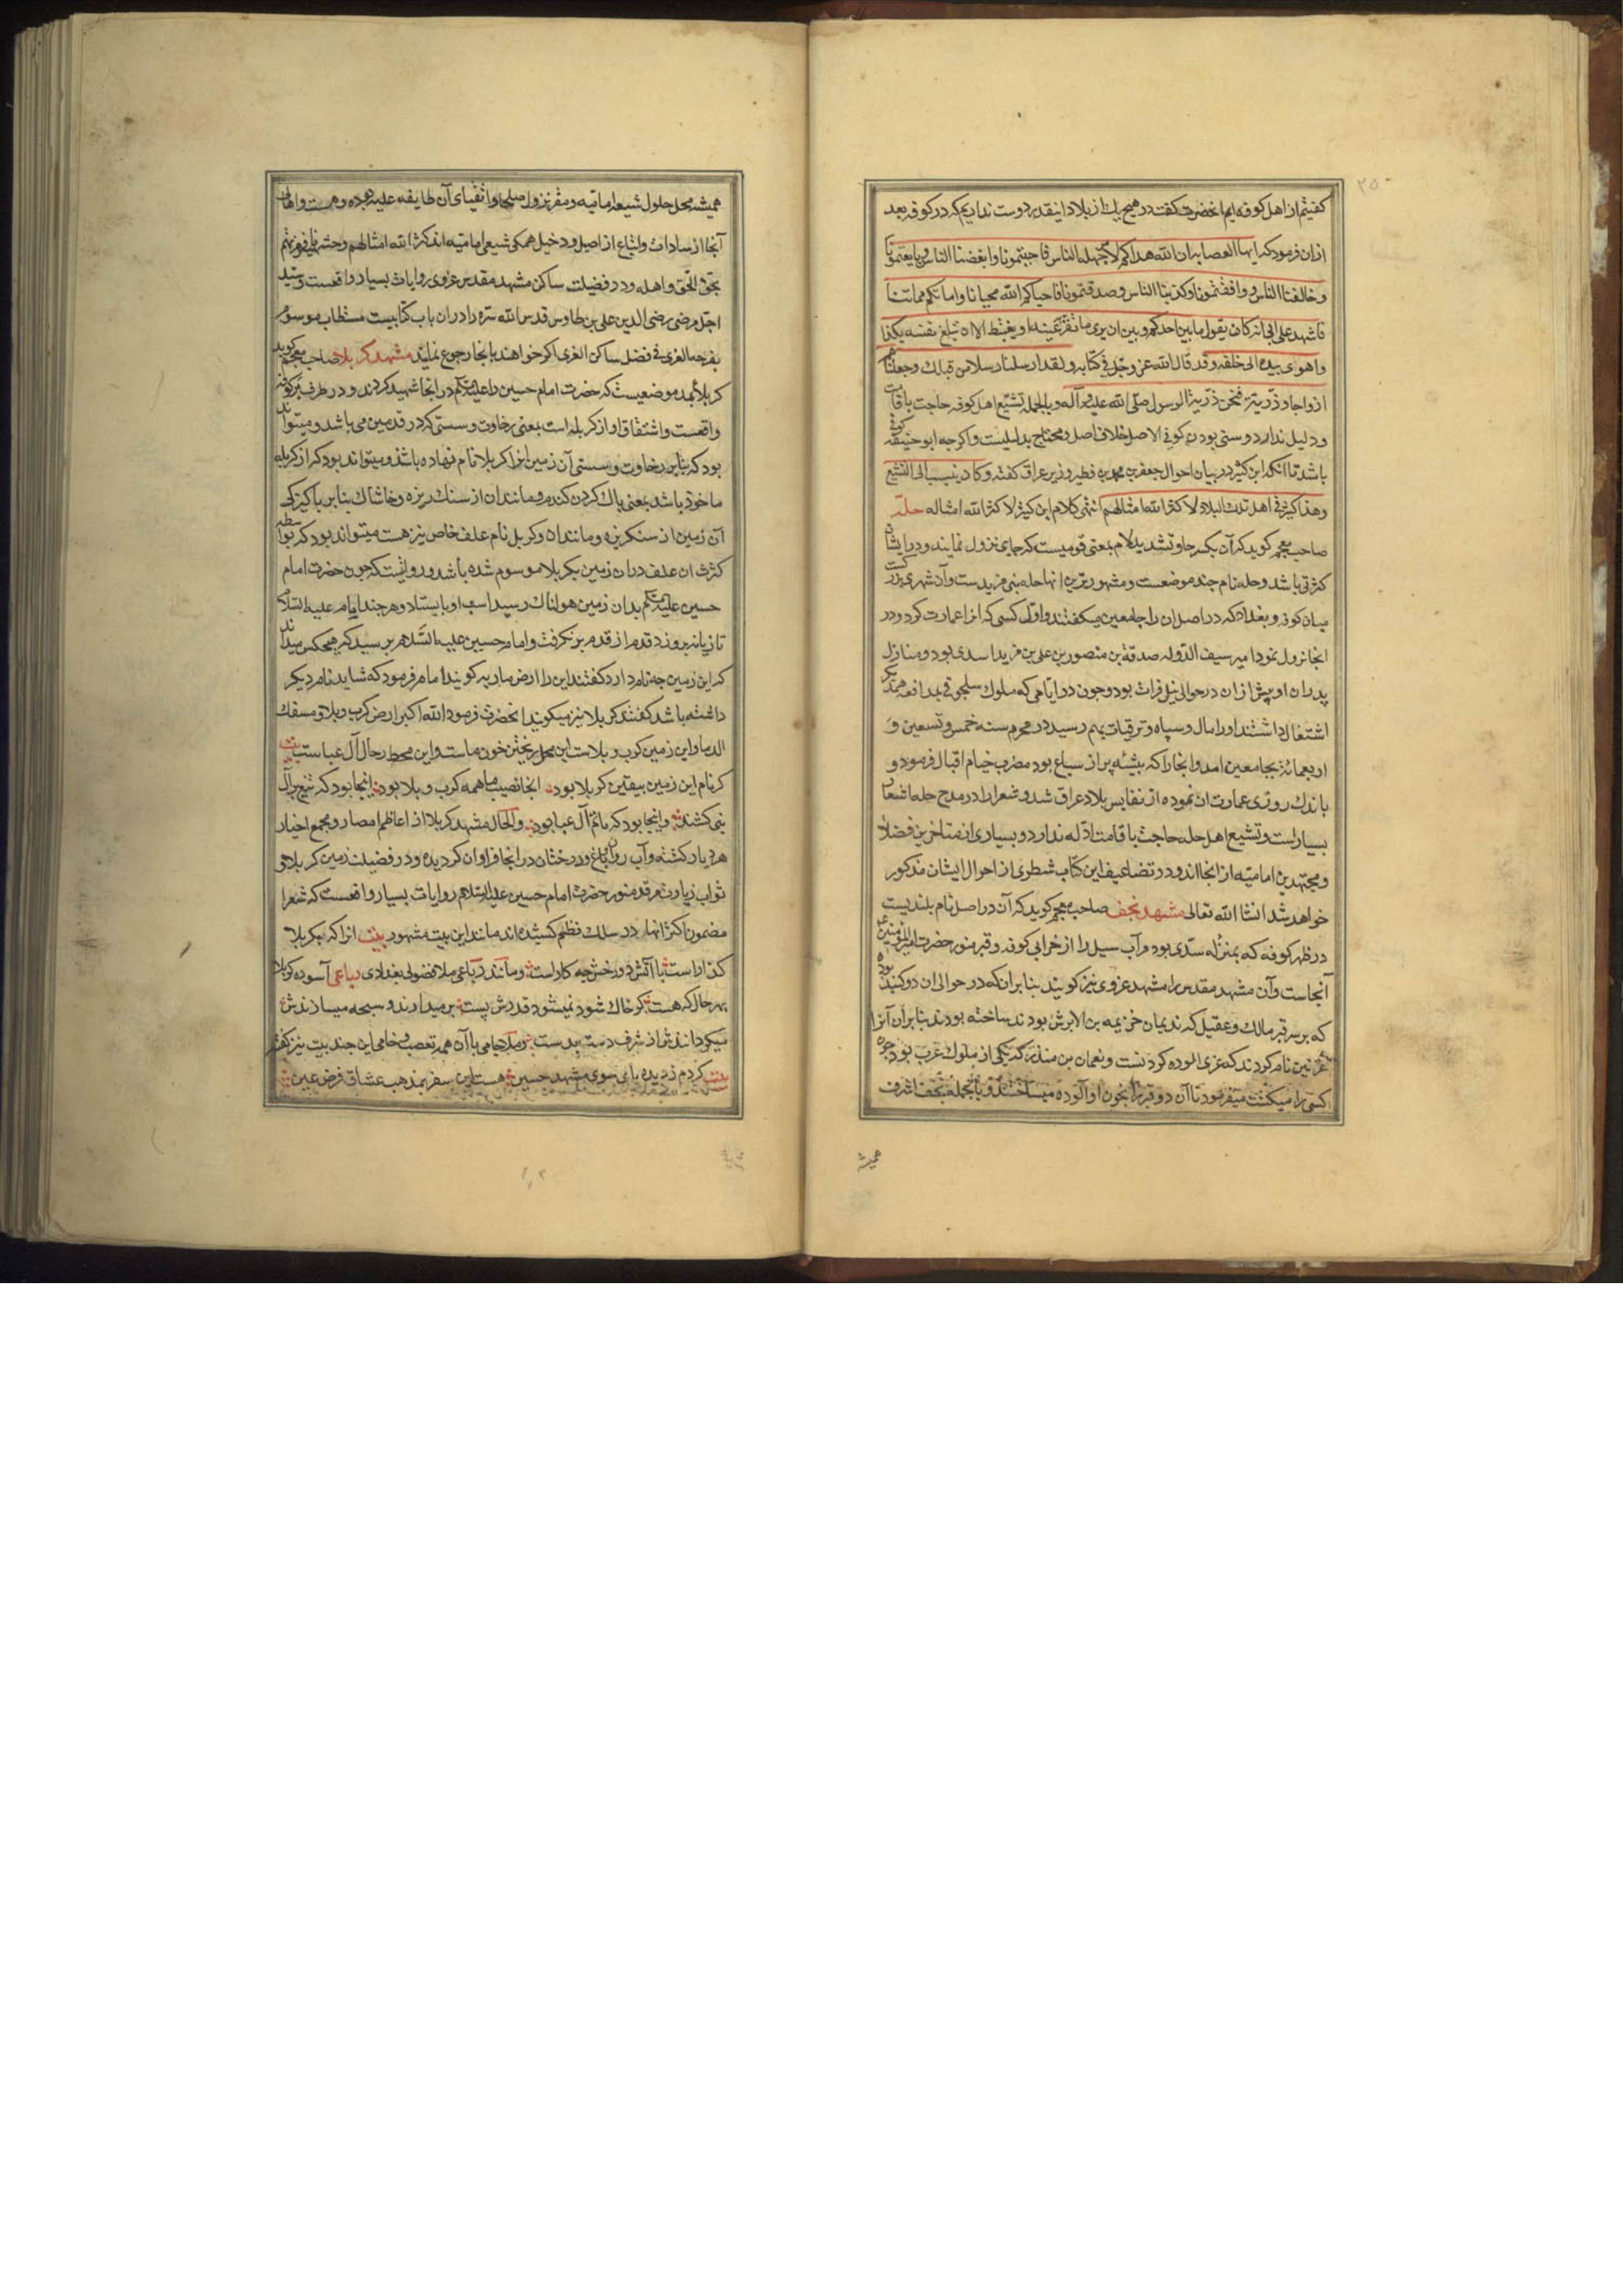 ۲۵۰
کفتیم از اهل کوفه‌ایم انحضرت کفت در هیچ یك از بلاد اینقدر دوست نداریم که در کوفه بعد
ازان فرمود که ایها العصابه ان الله هداکم لامر جهله الناس فاحببتمونا وابغضنا الناس وبایعتمونا
وخالفنا الناس ووافقتمونا وکذبنا الناس وصدقتمونا فاحیاکم الله محیانا واماتکم مماتنا
فاشهد علی ابی انه کان یقول ما بین احدکم وبین ان یری ما تقر عینه او یغتبط الا ان تبلغ نفسه هکذا
واهوی بیده الی خلقه وقد قال الله عز وجل فی کتابه ولقد ارسلنا رسلا من قبلك وجعلنا لهم
ازواجا وذریة فنحن ذریة الرسول صلی الله علیه وآله وبالجمله تشیع اهل کوفه حاجت باقامت
ودلیل ندارد وسنی بودن کوفی الاصل خلاف اصل ومحتاج بدلیلیست واکرچه ابوحنیفه کوفی
باشد تا انکه ابن کثیر در بیان احوال جعفر بن محمد بن فطیر وزیر عراق کفته وکان ینسب الی التشیع
وهذا کثیر فی اهل تلك البلاد لا کثر الله امثالهم انتهی کلام ابن کثیر لا کثر الله امثاله حله
صاحب معجم کوید که آن بکسر حا وتشدید لام بمعنی قومیست که جای نزول نمایند ودر ایشان
کثرتی باشد وحله نام چند موضعست ومشهورترین انها حله بنی مزیدست وآن شهری بزرکست
میان کوفه وبغداد که در اصل ان را جامعین میکفتند واول کسی که انرا عمارت کرد ودر
انجا نزول نمود امیر سیف الدوله صدقة بن منصور بن علی بن مزید اسدی بود ومنازل
پدران او پیش ازان در حوالی نیل فرات بود وچون در ایامی که ملوك سلجوقی بمدافعه همدیکر
اشتغال داشتند اورا مال وسپاه وترقیات بهم رسید در محرم سنه خمس وتسعین و
اربعمائه بجامعین امد وانجا را که بیشهٔ پر از سباع بود مضرب خیام اقبال فرمود و
باندك روزی عمارت ان نموده از نفایس بلاد عراق شد وشعرا را در مدح حله اشعار
بسیار است وتشیع اهل حله حاجت باقامت ادله ندارد وبسیاری از متاخرین فضلا
ومجتهدین امامیه از انجا اند ودر تضاعیف این کتاب شطری از احوال ایشان مذکور
خواهد شد انشا الله تعالی مشهد نجف صاحب معجم کوید که آن در اصل نام بلندیست
در ظهر کوفه که بمنزله سدی بود که آب سیل را از خرابی کوفه وقبر منور حضرت امیرالمؤمنین ع
آنجاست وآن مشهد مقدس را مشهد غروی نیز کویند بنابر ان که در حوالی ان دو کنبد بوده
که بر سر قبر مالك وعقیل که ندیمان خزیمه بن الابرش بودند ساخته بودند بنابر آن آنرا
غریین نام کردند که غری الوده کردنست ونعمان بن منذر که یکی از ملوك عرب بود چون
کسی را میکشت میفرمود تا آن دو قبر را بخون او آلوده میساختند وبالجمله نجف اشرف
همیشه
همیشه محل حلول شیعه امامیه ومقر نزول صلحا واتقیای آن طایفه علیه بوده وهست واهالی
آنجا از سادات واتباع از اصیل ودخیل همکی شیعی امامیه اند کثر الله امثالهم وحشرنا فی زمرتهم
بحق الحق واهله ودر فضیلت ساکن مشهد مقدس غروی روایات بسیار واقعست وسید
اجل مرضی رضی الدین علی بن طاوس قدس الله سره را دران باب کتابیست مستطاب موسوم
بفرحه الغری فی فضل ساکن الغری اکر خواهند بانجا رجوع نمایند مشهد کربلا صاحب معجم کوید
کربلا بمد موضعیست که حضرت امام حسین را علیه السلم در انجا شهید کردند ودر طرف بر کوفه
واقعست واشتقاق او از کربله است بمعنی رخاوت وسستی که در قدمین می باشد ومیتواند
بود که بنابر رخاوت وسستی آن زمین انرا کربلا نام نهاده باشند ومیتواند بود که از کربله
ماخوذ باشد بمعنی پاك کردن کندم ومانند ان از سنك ریزه وخاشاك بنابر پاکیزکی
آن زمین از سنکریزه ومانند ان وکربل نام علف خاص نیز هست میتواند بود که بواسطه
کثرت ان علف دران زمین بکربلا موسوم شده باشد وروایتست که چون حضرت امام
حسین علیه السلم بدان زمین هولناك رسید اسب او بایستاد وهرچند امام علیه السلام
تازیانه برو زد قدم از قدم برنکرفت وامام حسین علیه السلام پرسید که هیچکس میداند
که این زمین چه نام دارد کفتند این را ارض ماریه کویند امام فرمود که شاید نام دیکر
داشته باشد کفتند کربلا نیز میکویند انحضرت فرمود الله اکبر ارض کرب وبلا ومسفك
الدما واین زمین کرب وبلاست این محل ریختن خون ماست واین محط رحال آل عباست بیت
کر نام این زمین بیقین کربلا بود انجا نصیب ما همه کرب وبلا بود اینجا بود که تیغ بر آل
نبی کشند وانجا بود که ماتم آل عبا بود والحال مشهد کربلا از اعاظم امصار ومجمع اخیار
هر دیار کشته وآب روان وباغ ودرختان در انجا فراوان کردیده ودر فضیلت زمین کربلا و
ثواب زیارت مرقد منور حضرت امام حسین علیه السلام روایات بسیار واقعست که شعرا
مضمون اکثر انها در سلك نظم کشیده اند مانند این بیت مشهور بیت انرا که بکربلا
کذار است با آتش دوزخش چه کار است ومانند رباعی ملا فضولی بغدادی رباعی آسوده کربلا
بهر حال که هست کر خاك شود نمیشود قدرش پست بر میدارند وسبحه میسازندش
میکردانندش از شرف دست بدست وملا جامی با آن همه تعصب وخامی این چند بیت نیز کفته
بیت کردم ز دیده پای سوی مشهد حسین هست این سفر بمذهب عشاق فرض عین